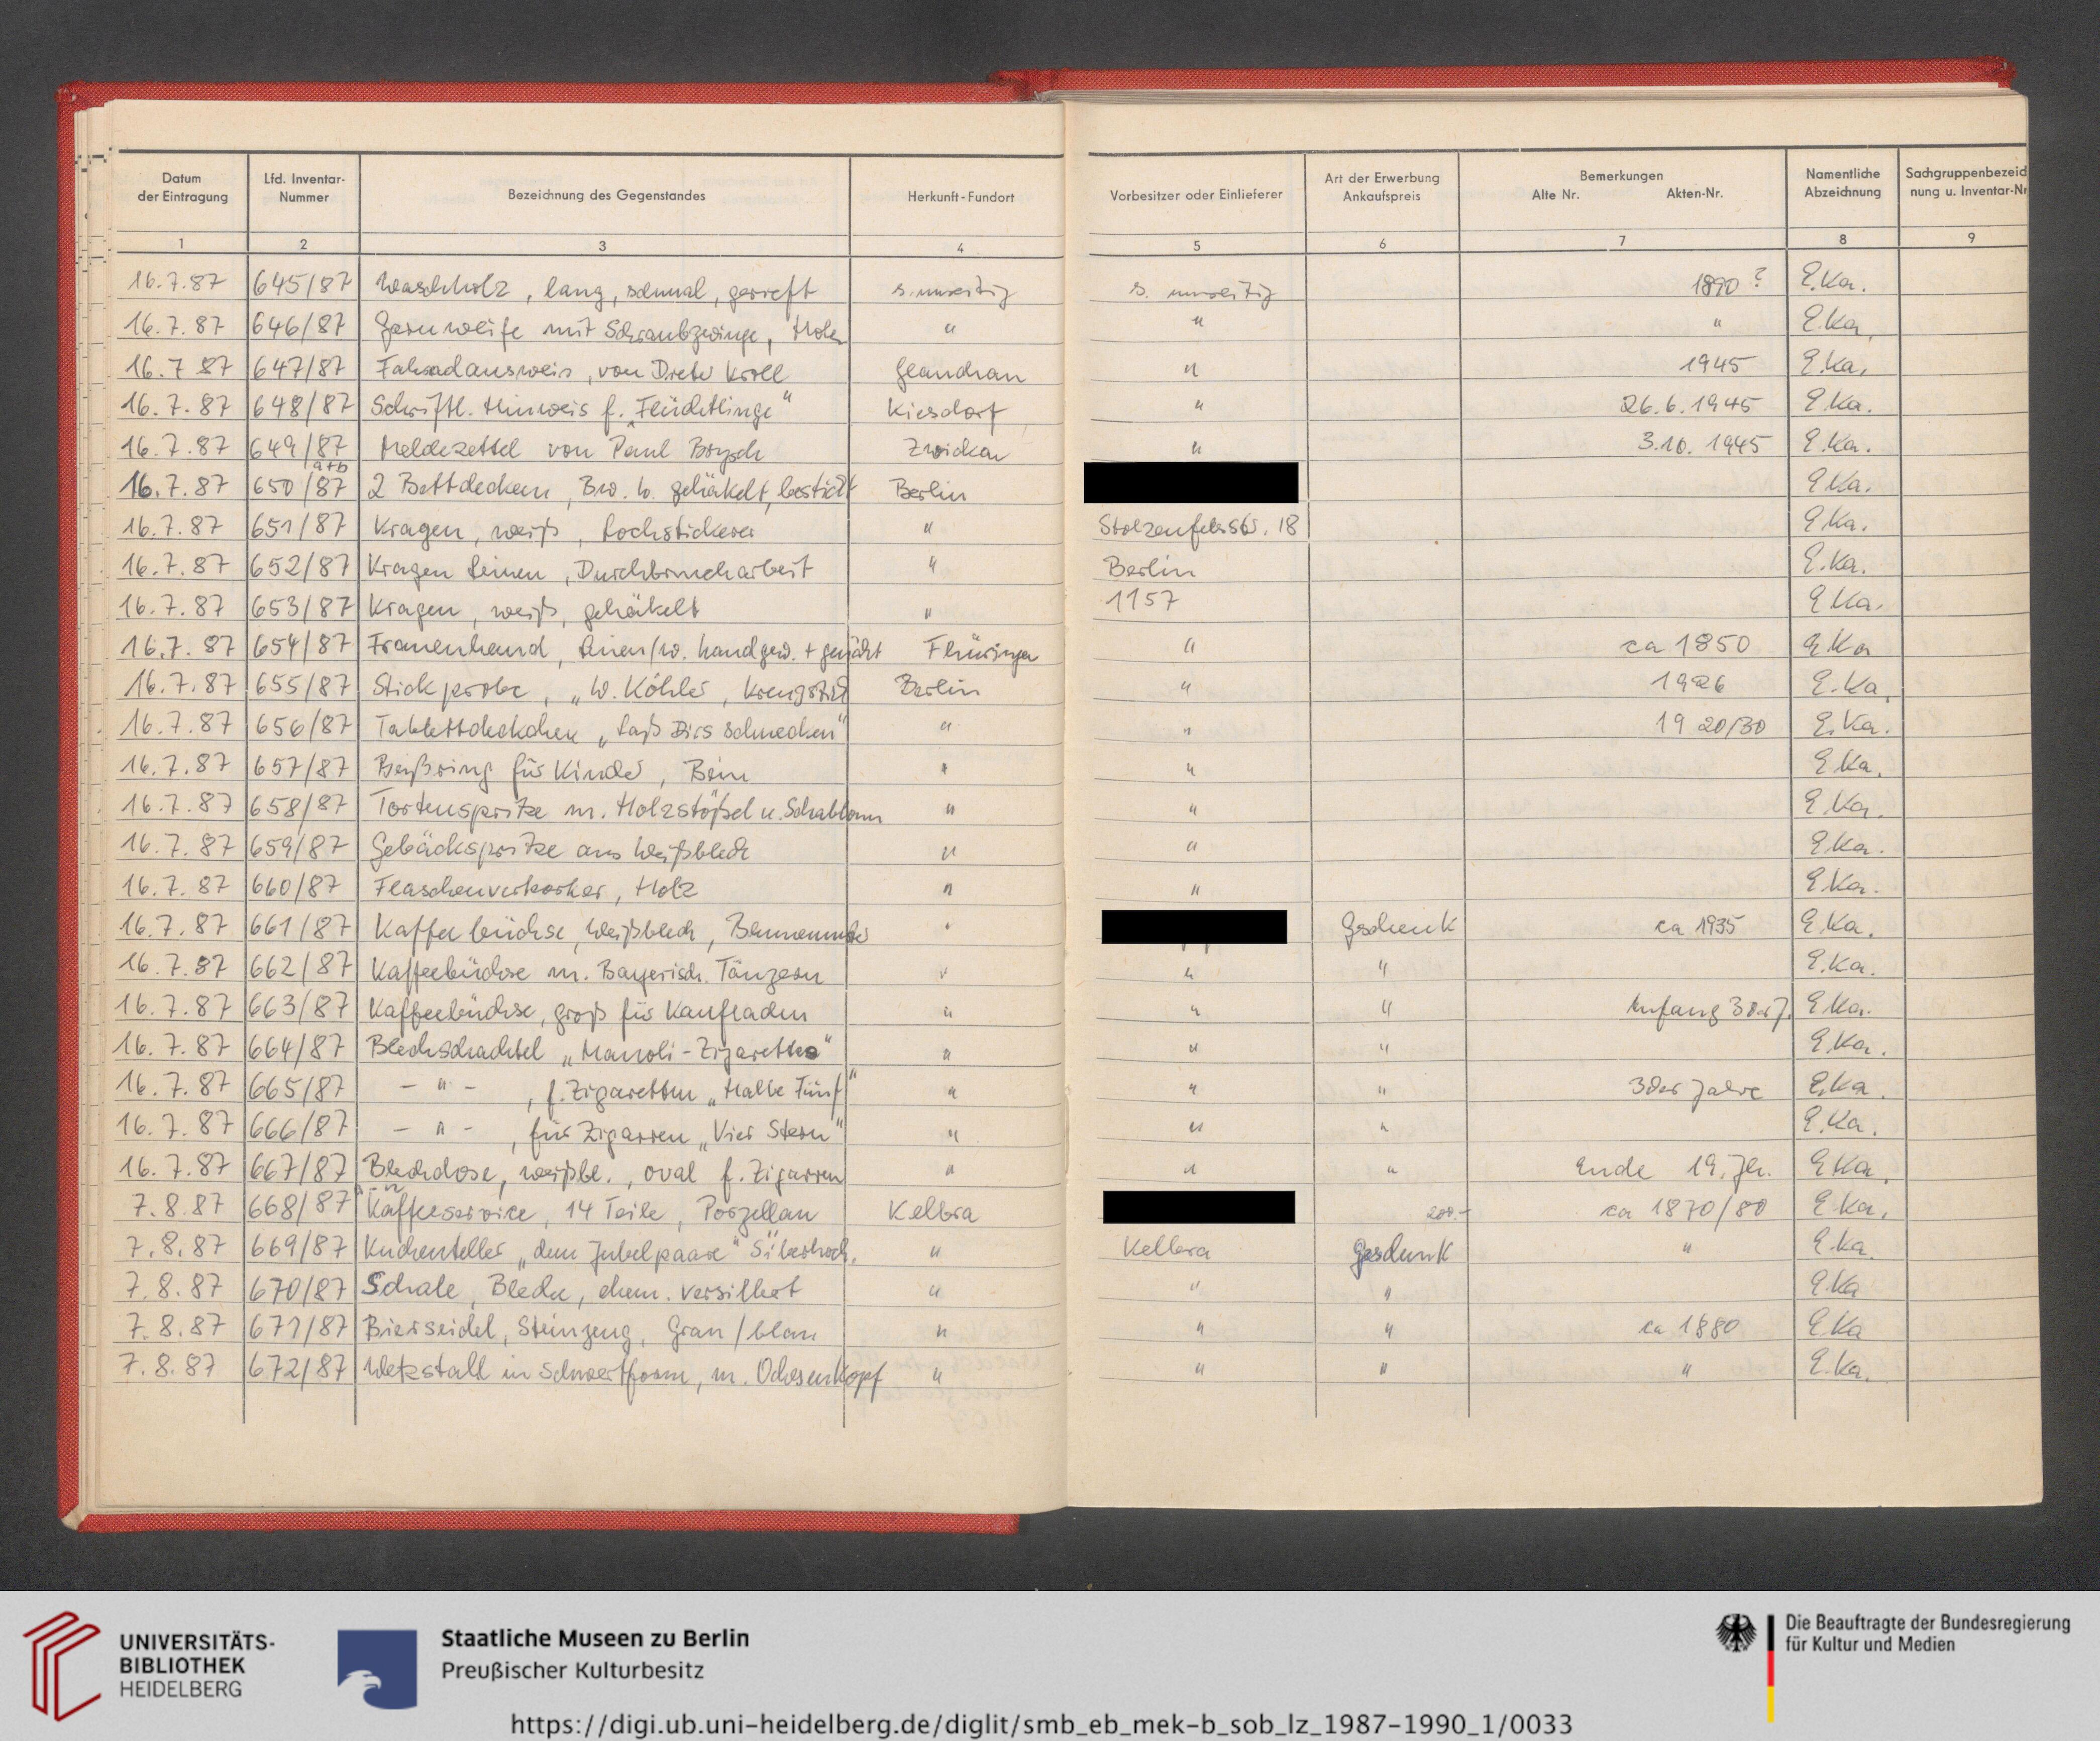 Datum der Eintragung | Lfd. Inventar-Nummer | Bezeichnung des Gegenstandes | Herkunft-Fundort | Vorbesitzer oder Einlieferer | Art der Erwerbung Ankaufspreis | Bemerkungen Alte Nr. Akten-Nr. | Namentliche Abzeichnung | Sachgruppenbezeid nung u. Inventar-Nr
1 2 3 4 5 6 7 8 9
16.7.87 645/87 Waschholz, lang, schmal, gerieft s. umseitig s. umseitig 1890? E.Ka.
16.7.87 646/87 Garnweife mit Schraubzwinge, Holz " " " E.Ka.
16.7.87 647/87 Fahradausweis, von Dieter Kroll Glauchau " 1945 E.Ka.
16.7.87 648/87 Schriftl. Hinweis f. "Flüchtlinge" Kiesdorf " 26.6.1945 E.Ka.
16.7.87 649/87 Meldezettel von Paul Zwickau " 3.10.1945 E.Ka.
16.7.87 650/87 a+b 2 Bettdecken, Bw. w. gehäkelt, bestickt Berlin E.Ka.
16.7.87 651/87 Kragen, weiß, Lochstickerei " Stolzenfelsstr. 18 E.Ka.
16.7.87 652/87 Kragen Leinen, Durchbrucharbeit " Berlin E.Ka.
16.7.87 653/87 Kragen, weiß, gehäkelt " 1157 E.Ka.
16.7.87 654/87 Frauenhemd, Leinen/w. handgew. + genäht Thüringen " ca 1850 E.Ka
16.7.87 655/87 Stickprobe, „W. Köhler, Kreuzstich Berlin " 1926 E.Ka.
16.7.87 656/87 Tablettdeckchen „Laß Dirs schmecken" " " 1920/30 E.Ka.
16.7.87 657/87 Beißring für Kinder, Bein " " E.Ka.
16.7.87 658/87 Tortenspritze m. Holzstößel u. Schablonen " " E.Ka.
16.7.87 659/87 Gebäckspritze aus Weißblech " " E.Ka.
16.7.87 660/87 Flaschenverkorker, Holz " " E.Ka.
16.7.87 661/87 Kaffeebüchse, Weißblech, Blumenmuster " Geschenk ca 1935 E.Ka.
16.7.87 662/87 Kaffeebüchse m. Bayerisch. Tänzern " " " E.Ka.
16.7.87 663/87 Kaffeebüchse, groß für Kaufladen " " " Anfang 30er J. E.Ka.
16.7.87 664/87 Blechschachtel „Manoli-Zigaretten" " " " E.Ka.
16.7.87 665/87 - " - , f. Zigaretten „Halbe Fünf" " " " 30er Jahre E.Ka.
16.7.87 666/87 - " - , für Zigarren „Vier Stern" " " " E.Ka.
16.7.87 667/87 Blechdose, weißbl., oval f. Zigarren " " " Ende 19. Jh. E.Ka.
7.8.87 668/87 Kaffeeservice, 14 Teile, Porzellan Kelbra 200.- ca 1870/80 E.Ka.
7.8.87 669/87 Kuchenteller „dem Jubelpaare" Silberhoch. " Kelbra Geschenk " E.Ka.
7.8.87 670/87 Schale, Blech, chem. versilbert " " " E.Ka
7.8.87 671/87 Bierseidel, Steinzeug, Grau/blau " " " ca 1880 E.Ka
7.8.87 672/87 Wetzstahl in Schwertform, m. Ochsenkopf " " " " E.Ka.
UNIVERSITÄTS-
BIBLIOTHEK
HEIDELBERG
Staatliche Museen zu Berlin
Preußischer Kulturbesitz
Die Beauftragte der Bundesregierung
für Kultur und Medien
https://digi.ub.uni-heidelberg.de/diglit/smb_eb_mek-b_sob_lz_1987-1990_1/0033